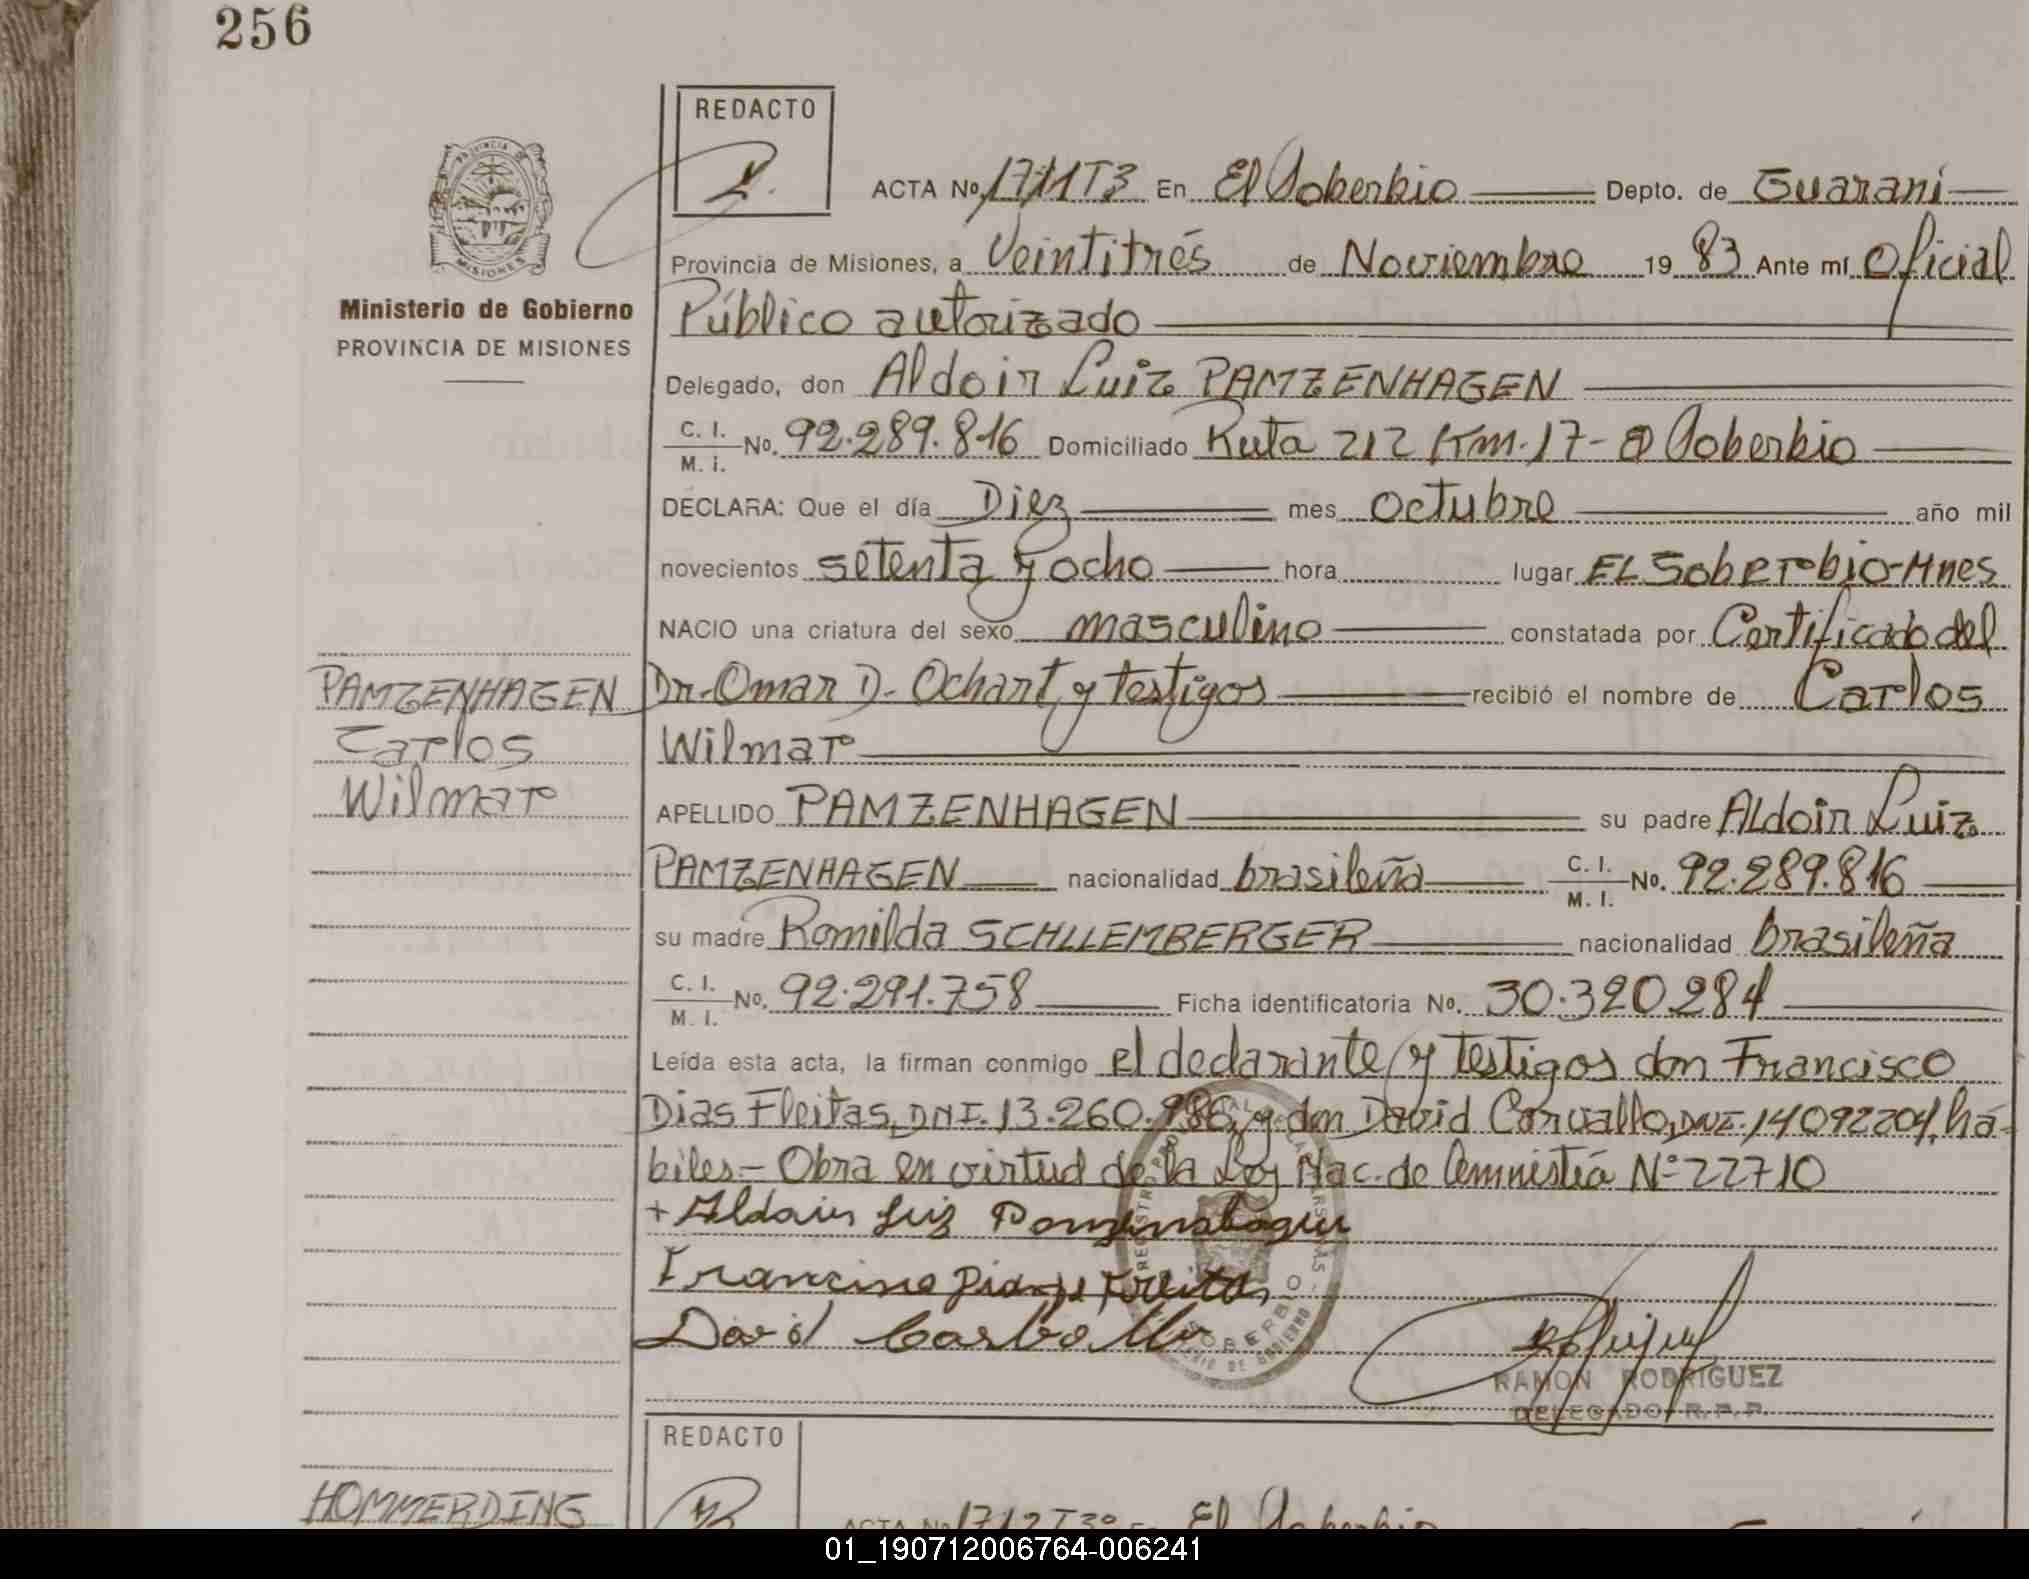 256
REDACTO
PROVINCIA DE
MISIONES
Ministerio de Gobierno
PROVINCIA DE MISIONES
ACTA No. 1711T3 En El Soberbio Depto. de Guaraní
Provincia de Misiones, a Veintitrés de Noviembre 19 83 Ante mí Oficial
Público autorizado
Delegado, don Aldoir Luiz PAMZENHAGEN
C. I. M. I. No. 92.289.816 Domiciliado Ruta 212 Km. 17- El Soberbio
DECLARA: Que el día Diez mes octubre año mil
novecientos setenta y ocho hora lugar EL Soberbio-Mnes
NACIO una criatura del sexo masculino constatada por Certificado del
Dr. Omar D. Ochart y testigos recibió el nombre de Carlos
Wilmar
PAMZENHAGEN
Carlos
Wilmar
APELLIDO PAMZENHAGEN su padre Aldoir Luiz
PAMZENHAGEN nacionalidad brasileña C. I. M. I. No. 92.289.816
su madre Romilda SCHLLEMBERGER nacionalidad brasileña
C. I. M. I. No. 92.291.758 Ficha identificatoria No. 30.320.284
Leída esta acta, la firman conmigo el declarante y testigos don Francisco
Dias Fleitas, DNI. 13.260.986, y don David Carvallo, DNI. 14092204, há-
biles.- Obra en virtud de la Ley Nac. de Amnistía Nº 22710
+ Aldoir Luiz
David
RAMON RODRIGUEZ
DELEGADO R.P.P.
REDACTO
HOMMERDING
ACTA No 1712T3º En El Soberbio
01_190712006764-006241